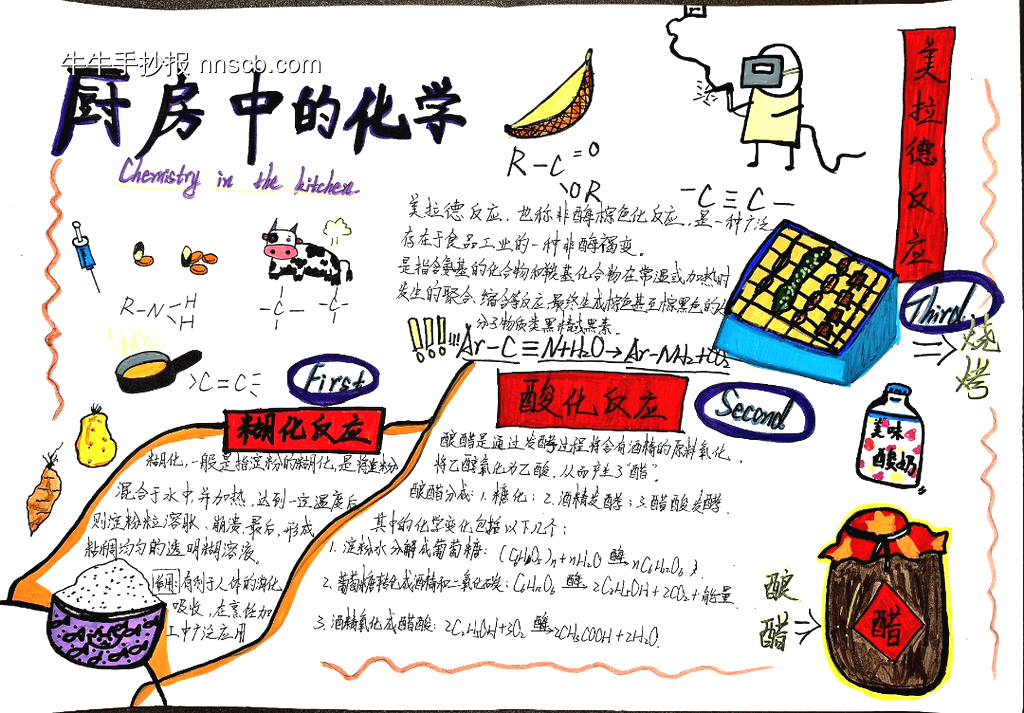 牛牛手抄报 nnscb.com
厨房中的化学
Chemistry in the kitchen
R-C=O
\OR
-C≡C-
美拉德反应
美拉德反应，也称非酶棕色化反应，是一种广泛
存在于食品工业的一种非酶褐变。
是指含氨基的化合物和羰基化合物在常温或加热时
发生的聚合、缩合等反应,最终生成棕色甚至棕黑色的大
分子物质类黑精或黑素。
!!! !!! Ar-C≡N+H2O→Ar-NH2+CO2
Third
⇒烧烤
R-N-H
H
-C- -C-
>C=C<
First
糊化反应
糊化,一般是指淀粉的糊化,是将淀粉
混合于水中,并加热,达到一定温度后
则淀粉粒溶胀、崩溃,最后,形成
粘稠均匀的透明糊溶液。
作用:有利于人体的消化
吸收,在烹饪加
工中广泛应用
酸化反应
Second
酿醋是通过发酵过程将含有酒精的原料氧化,
将乙醇氧化为乙酸,从而产生了"醋"。
酿醋分成:1.糖化;2.酒精发酵;3.醋酸发酵.
其中的化学变化包括以下几个:
1.淀粉水分解成葡萄糖:(C6H10O5)n+nH2O 酶→nC6H12O6;
2.葡萄糖转化成酒精和二氧化碳:C6H12O6 酶→2C2H5OH+2CO2+能量.
3.酒精氧化成醋酸:2C2H5OH+3O2 酶→2CH3COOH+2H2O.
美味
酸奶
酿醋⇒
醋